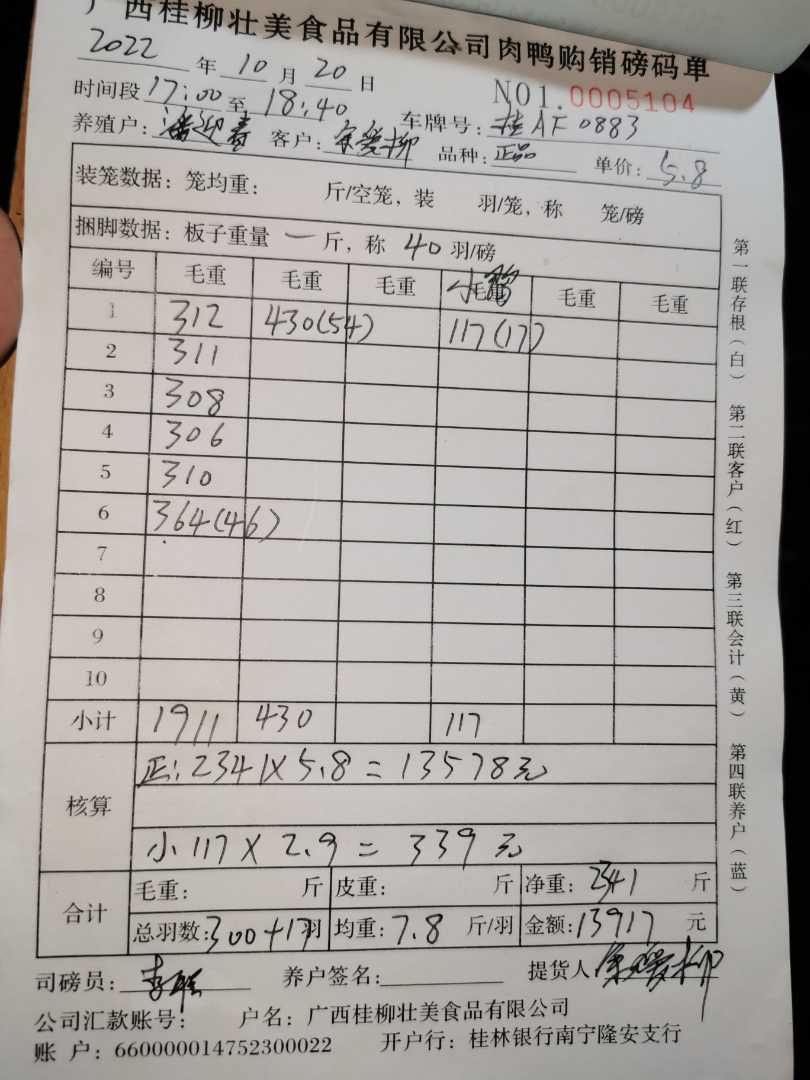 广西桂柳壮美食品有限公司肉鸭购销磅码单
2022 年 10 月 20 日
NO1.0005104
时间段 17:00 至 18:40 车牌号: 桂AF0883
养殖户: 潘迎春 客户: 爱柳 品种: 正品 单价: 5.8
装笼数据: 笼均重: 斤/空笼, 装 羽/笼, 称 笼/磅
捆脚数据: 板子重量 一 斤, 称 40 羽/磅
编号 毛重 毛重 毛重 小 毛重 毛重
1 312 430(54) 117(17)
2 311
3 308
4 306
5 310
6 364(46)
7
8
9
10
小计 1911 430 117
核算 正: 2341X5.8=13578元
小 117X2.9=339元
合计 毛重: 斤 皮重: 斤 净重: 2341 斤
总羽数: 300+17 羽 均重: 7.8 斤/羽 金额: 13917 元
司磅员: 养户签名: 提货人 爱柳
公司汇款账号: 户名: 广西桂柳壮美食品有限公司
账 户: 660000014752300022 开户行: 桂林银行南宁隆安支行
第一联存根(白) 第二联客户(红) 第三联会计(黄) 第四联养户(蓝)